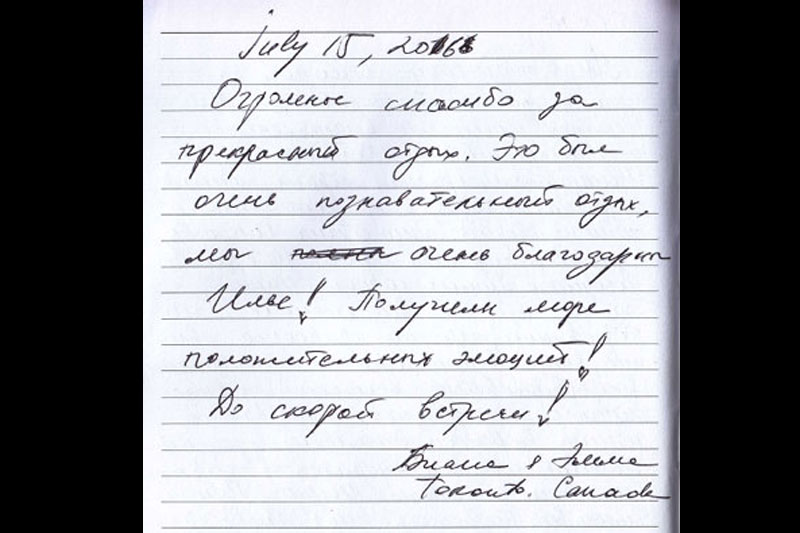 July 15, 2016
Огромное спасибо за
прекрасный отдых. Это был
очень познавательный отдых,
мы очень благодарны
Илье! Получили море
положительных эмоций!
До скорой встречи!
&
Toronto. Canada